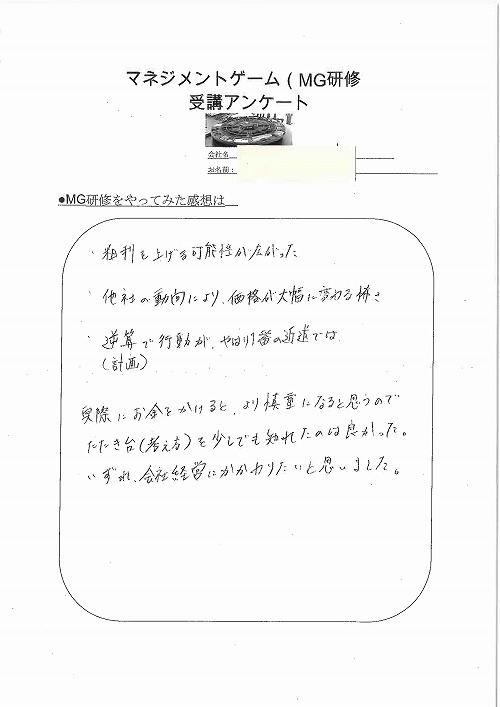 マネジメントゲーム（MG研修
受講アンケート
会社名
お名前：
●MG研修をやってみた感想は
・粗利を上げる可能性が広がった
・他社の動向により、価格が大幅に変わる怖さ
・逆算で行動が、やはり1番の近道では
（計画）
実際にお金をかけると、より慎重になると思うので
たたき台（考え方）を少しでも知れたのは良かった。
いずれ、会社経営にかかわりたいと思いました。